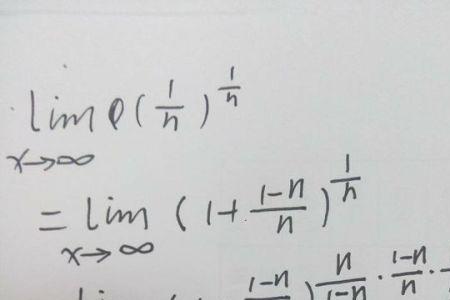 lim e(1/n)^(1/n)
x→∞
= lim (1+ (1-n)/n)^(1/n)
x→∞
(1-n)/n)^(n/(1-n) · (1-n)/n ·